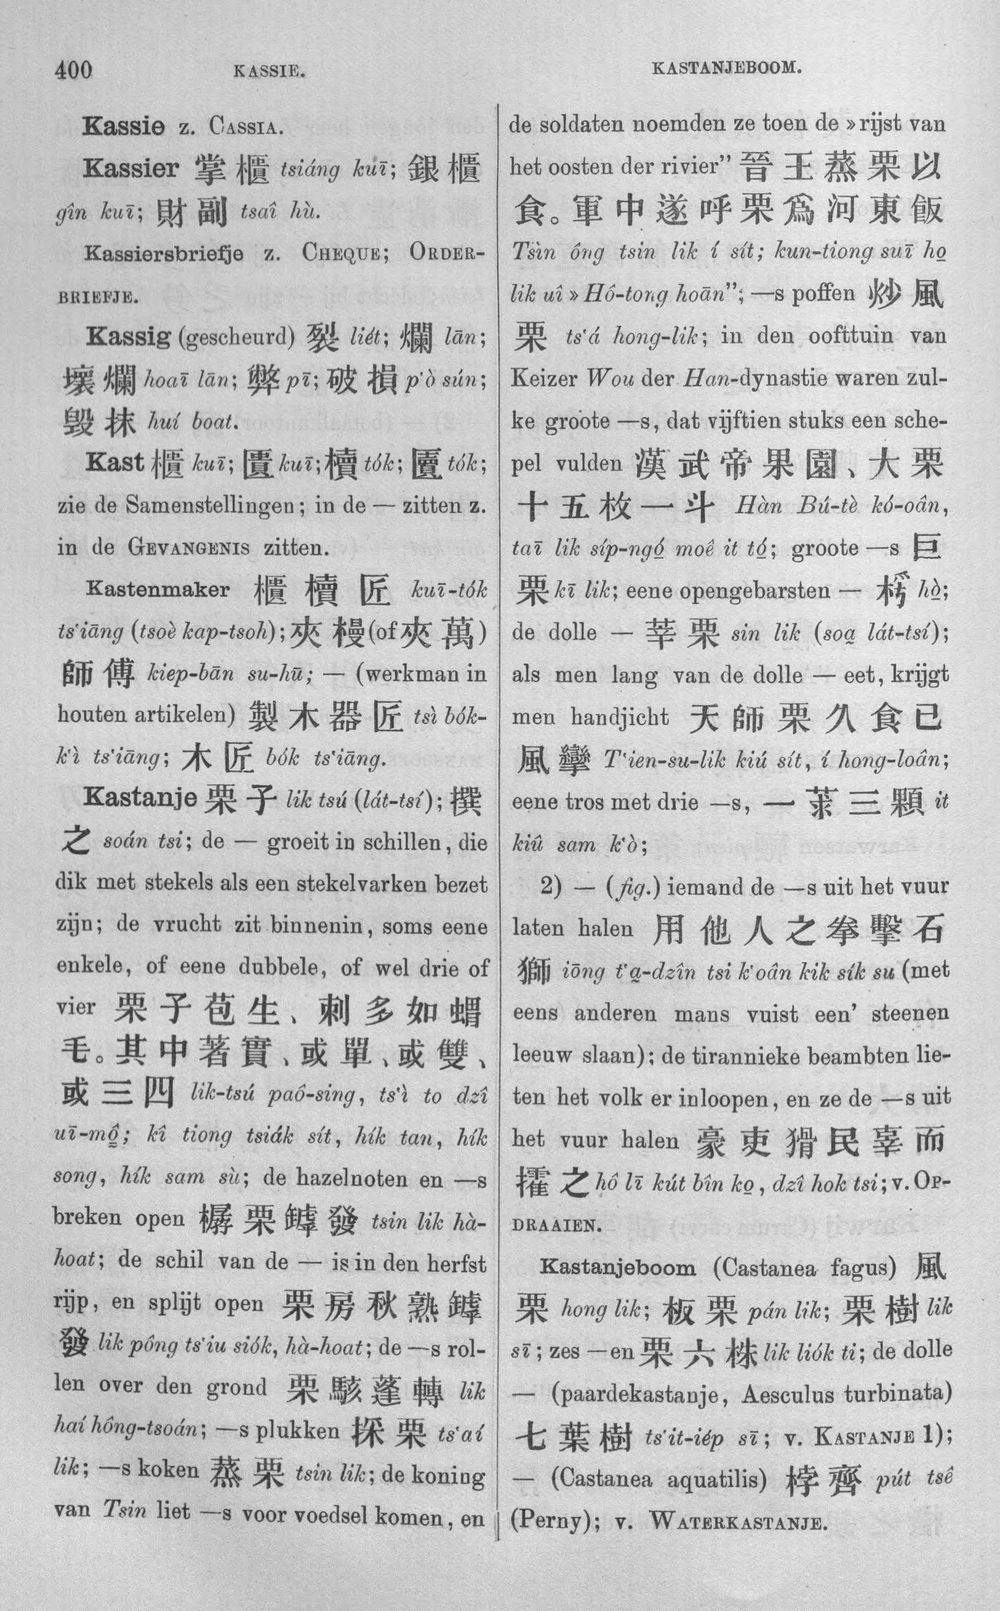 400
KASSIE.
KASTANJEBOOM.
Kassie z. CASSIA.
Kassier 掌櫃 tsiáng kuī; 銀櫃
gîn kuī; 財副 tsaî hù.
Kassiersbriefje z. CHEQUE; ORDER-
BRIEFJE.
Kassig (gescheurd) 裂 liét; 爛 lān;
壞爛 hoaī lān; 弊 pī; 破損 p'ò sún;
毀抹 huí boat.
Kast 櫃 kuī; 匱 kuī; 櫝 tók; 匵 tók;
zie de Samenstellingen; in de — zitten z.
in de GEVANGENIS zitten.
Kastenmaker 櫃櫝匠 kuī-tók
ts'iāng (tsoè kap-tsoh); 夾槾 (of 夾萬)
師傅 kiep-bān su-hū; — (werkman in
houten artikelen) 製木器匠 tsì bók-
k'ì ts'iāng; 木匠 bók ts'iāng.
Kastanje 栗子 lik tsú (lát-tsí); 撰
之 soán tsi; de — groeit in schillen, die
dik met stekels als een stekelvarken bezet
zijn; de vrucht zit binnenin, soms eene
enkele, of eene dubbele, of wel drie of
vier 栗子苞生、刺多如蝟
毛。其中著實、或單、或雙、
或三四 lik-tsú paô-sing, ts'ì to dzî
uī-mô͘; kî tiong tsiák sít, hík tan, hík
song, hík sam sù; de hazelnoten en —s
breken open 樼栗罅發 tsin lik hà-
hoat; de schil van de — is in den herfst
rijp, en splijt open 栗房秋熟罅
發 lik pông ts'iu siók, hà-hoat; de —s rol-
len over den grond 栗駭蓬轉 lik
haí hông-tsoán; —s plukken 採栗 ts'aí
lik; —s koken 蒸栗 tsin lik; de koning
van Tsin liet —s voor voedsel komen, en
de soldaten noemden ze toen de »rijst van
het oosten der rivier" 晉王蒸栗以
食。軍中遂呼栗爲河東飯
Tsìn óng tsin lik í sít; kun-tiong suī ho͘
lik uî »Hô-tong hoān"; —s poffen 炒風
栗 ts'á hong-lik; in den oofttuin van
Keizer Wou der Han-dynastie waren zul-
ke groote —s, dat vijftien stuks een sche-
pel vulden 漢武帝果園、大栗
十五枚一斗 Hàn Bú-tè kó-oân,
taī lik síp-ngó͘ moê it tó͘; groote —s 巨
栗 kī lik; eene opengebarsten — hò͘;
de dolle — 莘栗 sin lik (soa̤ lát-tsí);
als men lang van de dolle — eet, krijgt
men handjicht 天師栗久食已
風攣 T'ien-su-lik kiú sít, í hong-loân;
eene tros met drie —s, 一莍三顆 it
kiû sam k'ò;
2) — (fig.) iemand de —s uit het vuur
laten halen 用他人之拳擊石
獅 iōng t'a̤-dzîn tsi k'oân kik sík su (met
eens anderen mans vuist een' steenen
leeuw slaan); de tirannieke beambten lie-
ten het volk er inloopen, en ze de —s uit
het vuur halen 豪吏猾民辜而
搉之 hô lī kút bîn ko͘, dzî hok tsi; v. OP-
DRAAIEN.
Kastanjeboom (Castanea fagus) 風
栗 hong lik; 板栗 pán lik; 栗樹 lik
sī; zes —en 栗六株 lik liók ti; de dolle
— (paardekastanje, Aesculus turbinata)
七葉樹 ts'it-iép sī; v. KASTANJE 1);
— (Castanea aquatilis) 桲齊 pút tsê
(Perny); v. WATERKASTANJE.